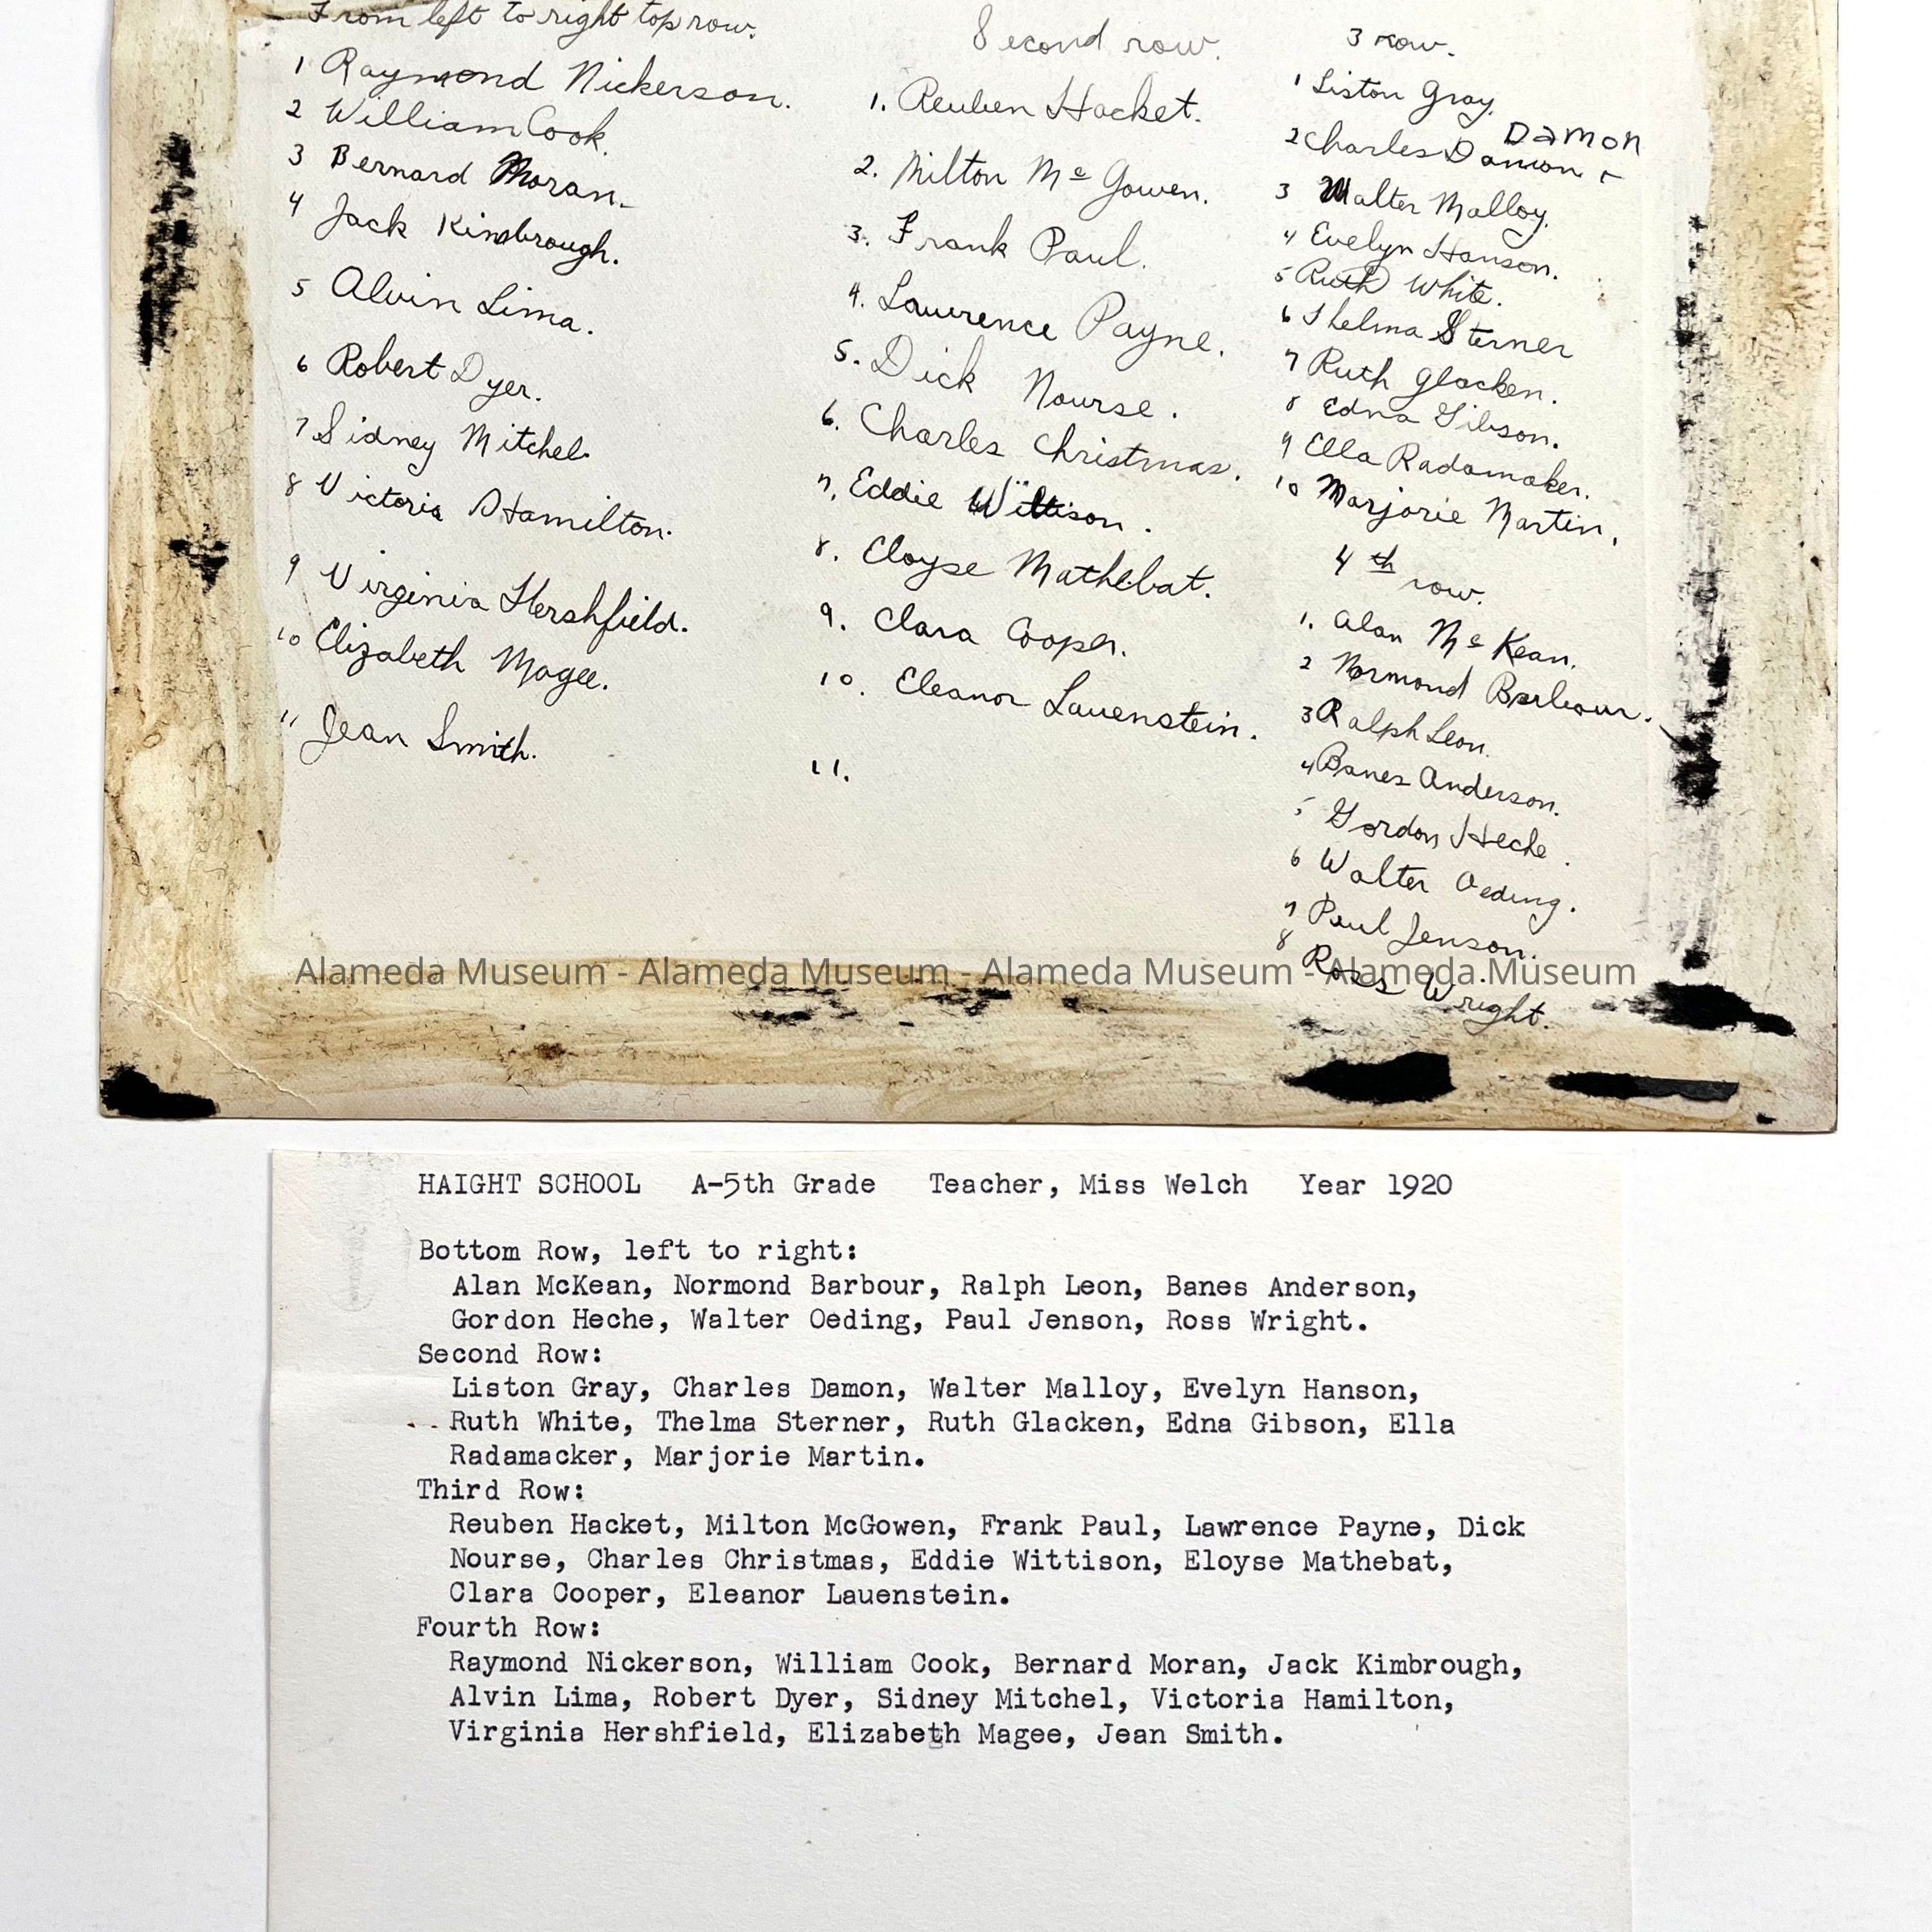 From left to right top row.
1 Raymond Nickerson.
2 William Cook.
3 Bernard Moran.
4 Jack Kimbrough.
5 Alvin Lima.
6 Robert Dyer.
7 Sidney Mitchel.
8 Victoria Hamilton.
9 Virginia Hershfield.
10 Elizabeth Magee.
11 Jean Smith.
Second row.
1. Reuben Hacket.
2. Milton Mc Gowen.
3. Frank Paul.
4. Lawrence Payne.
5. Dick Nourse.
6. Charles Christmas.
7. Eddie Wittison.
8. Eloyse Mathebat.
9. Clara Cooper.
10. Eleanor Lauenstein.
11.
3 row.
1 Liston Gray.
Damon
2 Charles Damon
3 Walter Malloy.
4 Evelyn Hanson.
5 Ruth White.
6 Thelma Sterner
7 Ruth Glacken.
8 Edna Gibson.
9 Ella Radamaker.
10 Marjorie Martin.
4th row.
1. Alan Mc Kean.
2 Normond Barbour.
3 Ralph Leon.
4 Banes Anderson.
5 Gordon Heche.
6 Walter Oeding.
7 Paul Jenson.
8 Ross Wright.
Alameda Museum - Alameda Museum - Alameda Museum - Alameda Museum
HAIGHT SCHOOL A-5th Grade Teacher, Miss Welch Year 1920
Bottom Row, left to right:
Alan McKean, Normond Barbour, Ralph Leon, Banes Anderson,
Gordon Heche, Walter Oeding, Paul Jenson, Ross Wright.
Second Row:
Liston Gray, Charles Damon, Walter Malloy, Evelyn Hanson,
Ruth White, Thelma Sterner, Ruth Glacken, Edna Gibson, Ella
Radamacker, Marjorie Martin.
Third Row:
Reuben Hacket, Milton McGowen, Frank Paul, Lawrence Payne, Dick
Nourse, Charles Christmas, Eddie Wittison, Eloyse Mathebat,
Clara Cooper, Eleanor Lauenstein.
Fourth Row:
Raymond Nickerson, William Cook, Bernard Moran, Jack Kimbrough,
Alvin Lima, Robert Dyer, Sidney Mitchel, Victoria Hamilton,
Virginia Hershfield, Elizabeth Magee, Jean Smith.